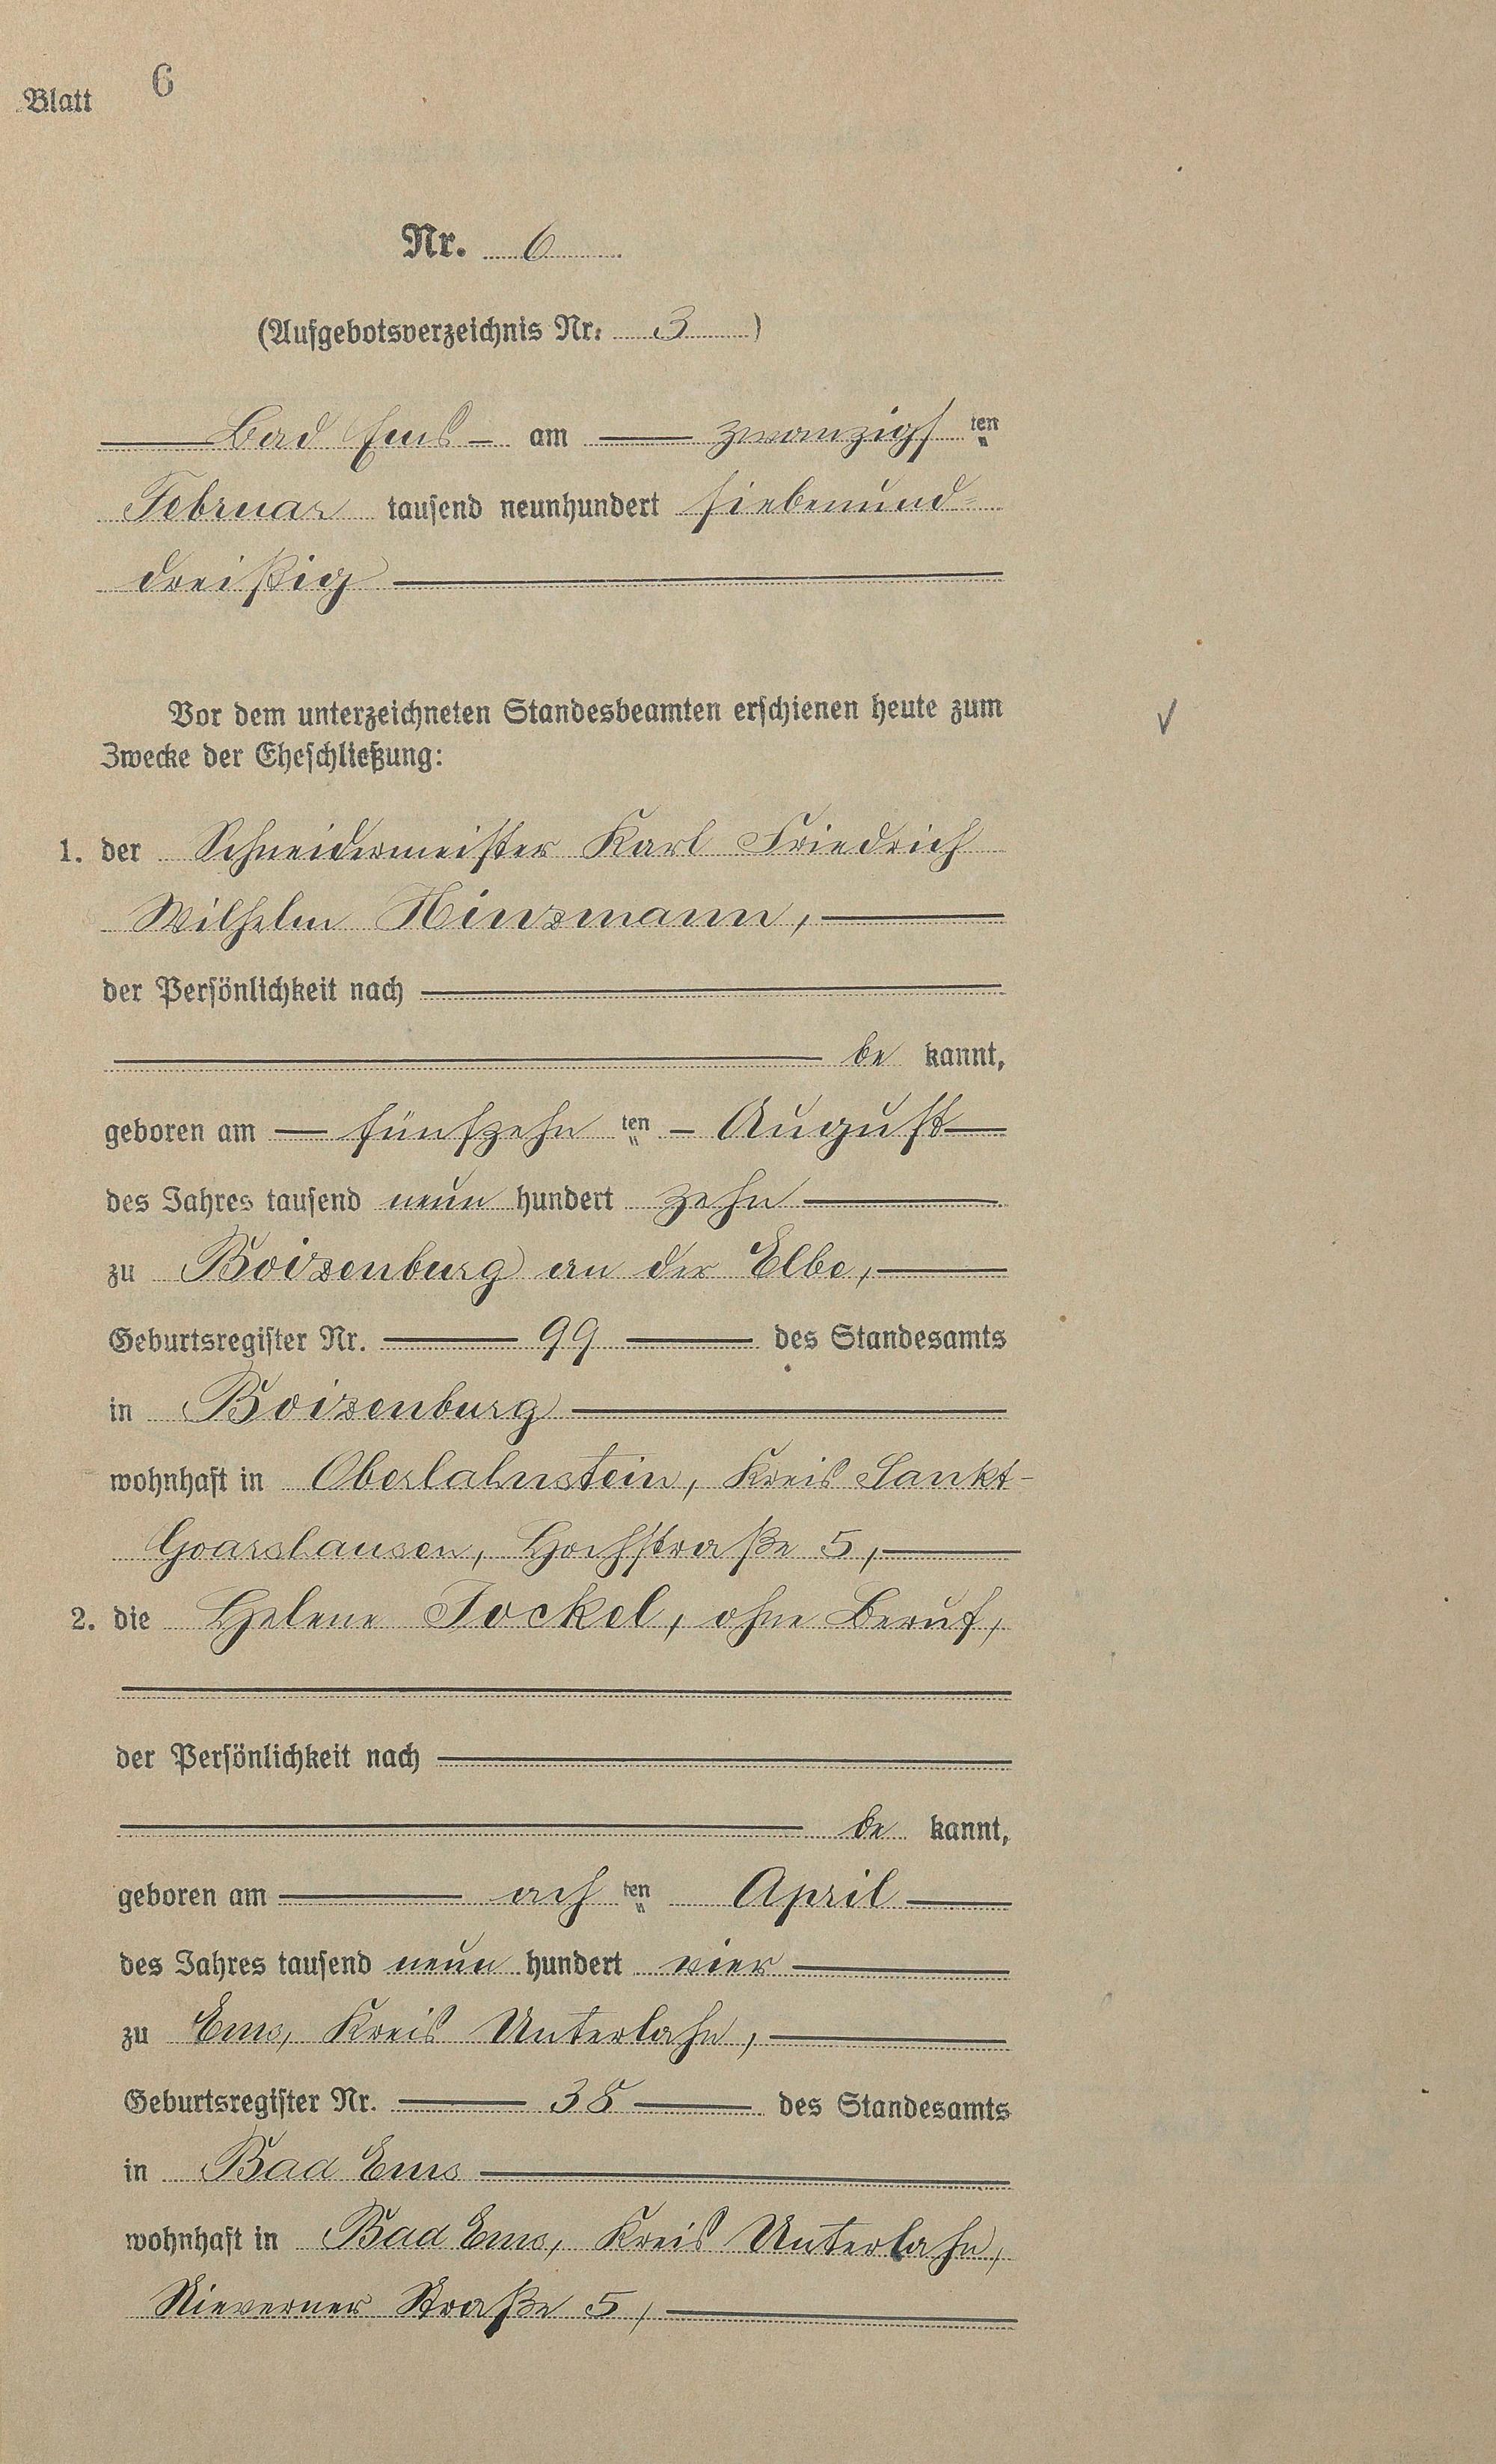 Blatt 6
Nr. 6
(Aufgebotsverzeichnis Nr. 3)
Bad Ems am zwanzigsten
Februar tausend neunhundert siebenund-
dreißig
Vor dem unterzeichneten Standesbeamten erschienen heute zum
Zwecke der Eheschließung:
1. der Schneidermeister Karl Friedrich
Wilhelm Hinzmann,
der Persönlichkeit nach
be kannt,
geboren am fünfzehn ten August
des Jahres tausend neun hundert zehn
zu Boizenburg an der Elbe,
Geburtsregister Nr. 99 des Standesamts
in Boizenburg
wohnhaft in Oberlahnstein, Kreis Sankt-
Goarshausen, Hochstraße 5,
2. die Helene Jockel, ohne Beruf,
der Persönlichkeit nach
be kannt,
geboren am ach ten April
des Jahres tausend neun hundert vier
zu Ems, Kreis Unterlahn,
Geburtsregister Nr. 38 des Standesamts
in Bad Ems
wohnhaft in Bad Ems, Kreis Unterlahn,
Nieverner Straße 5,